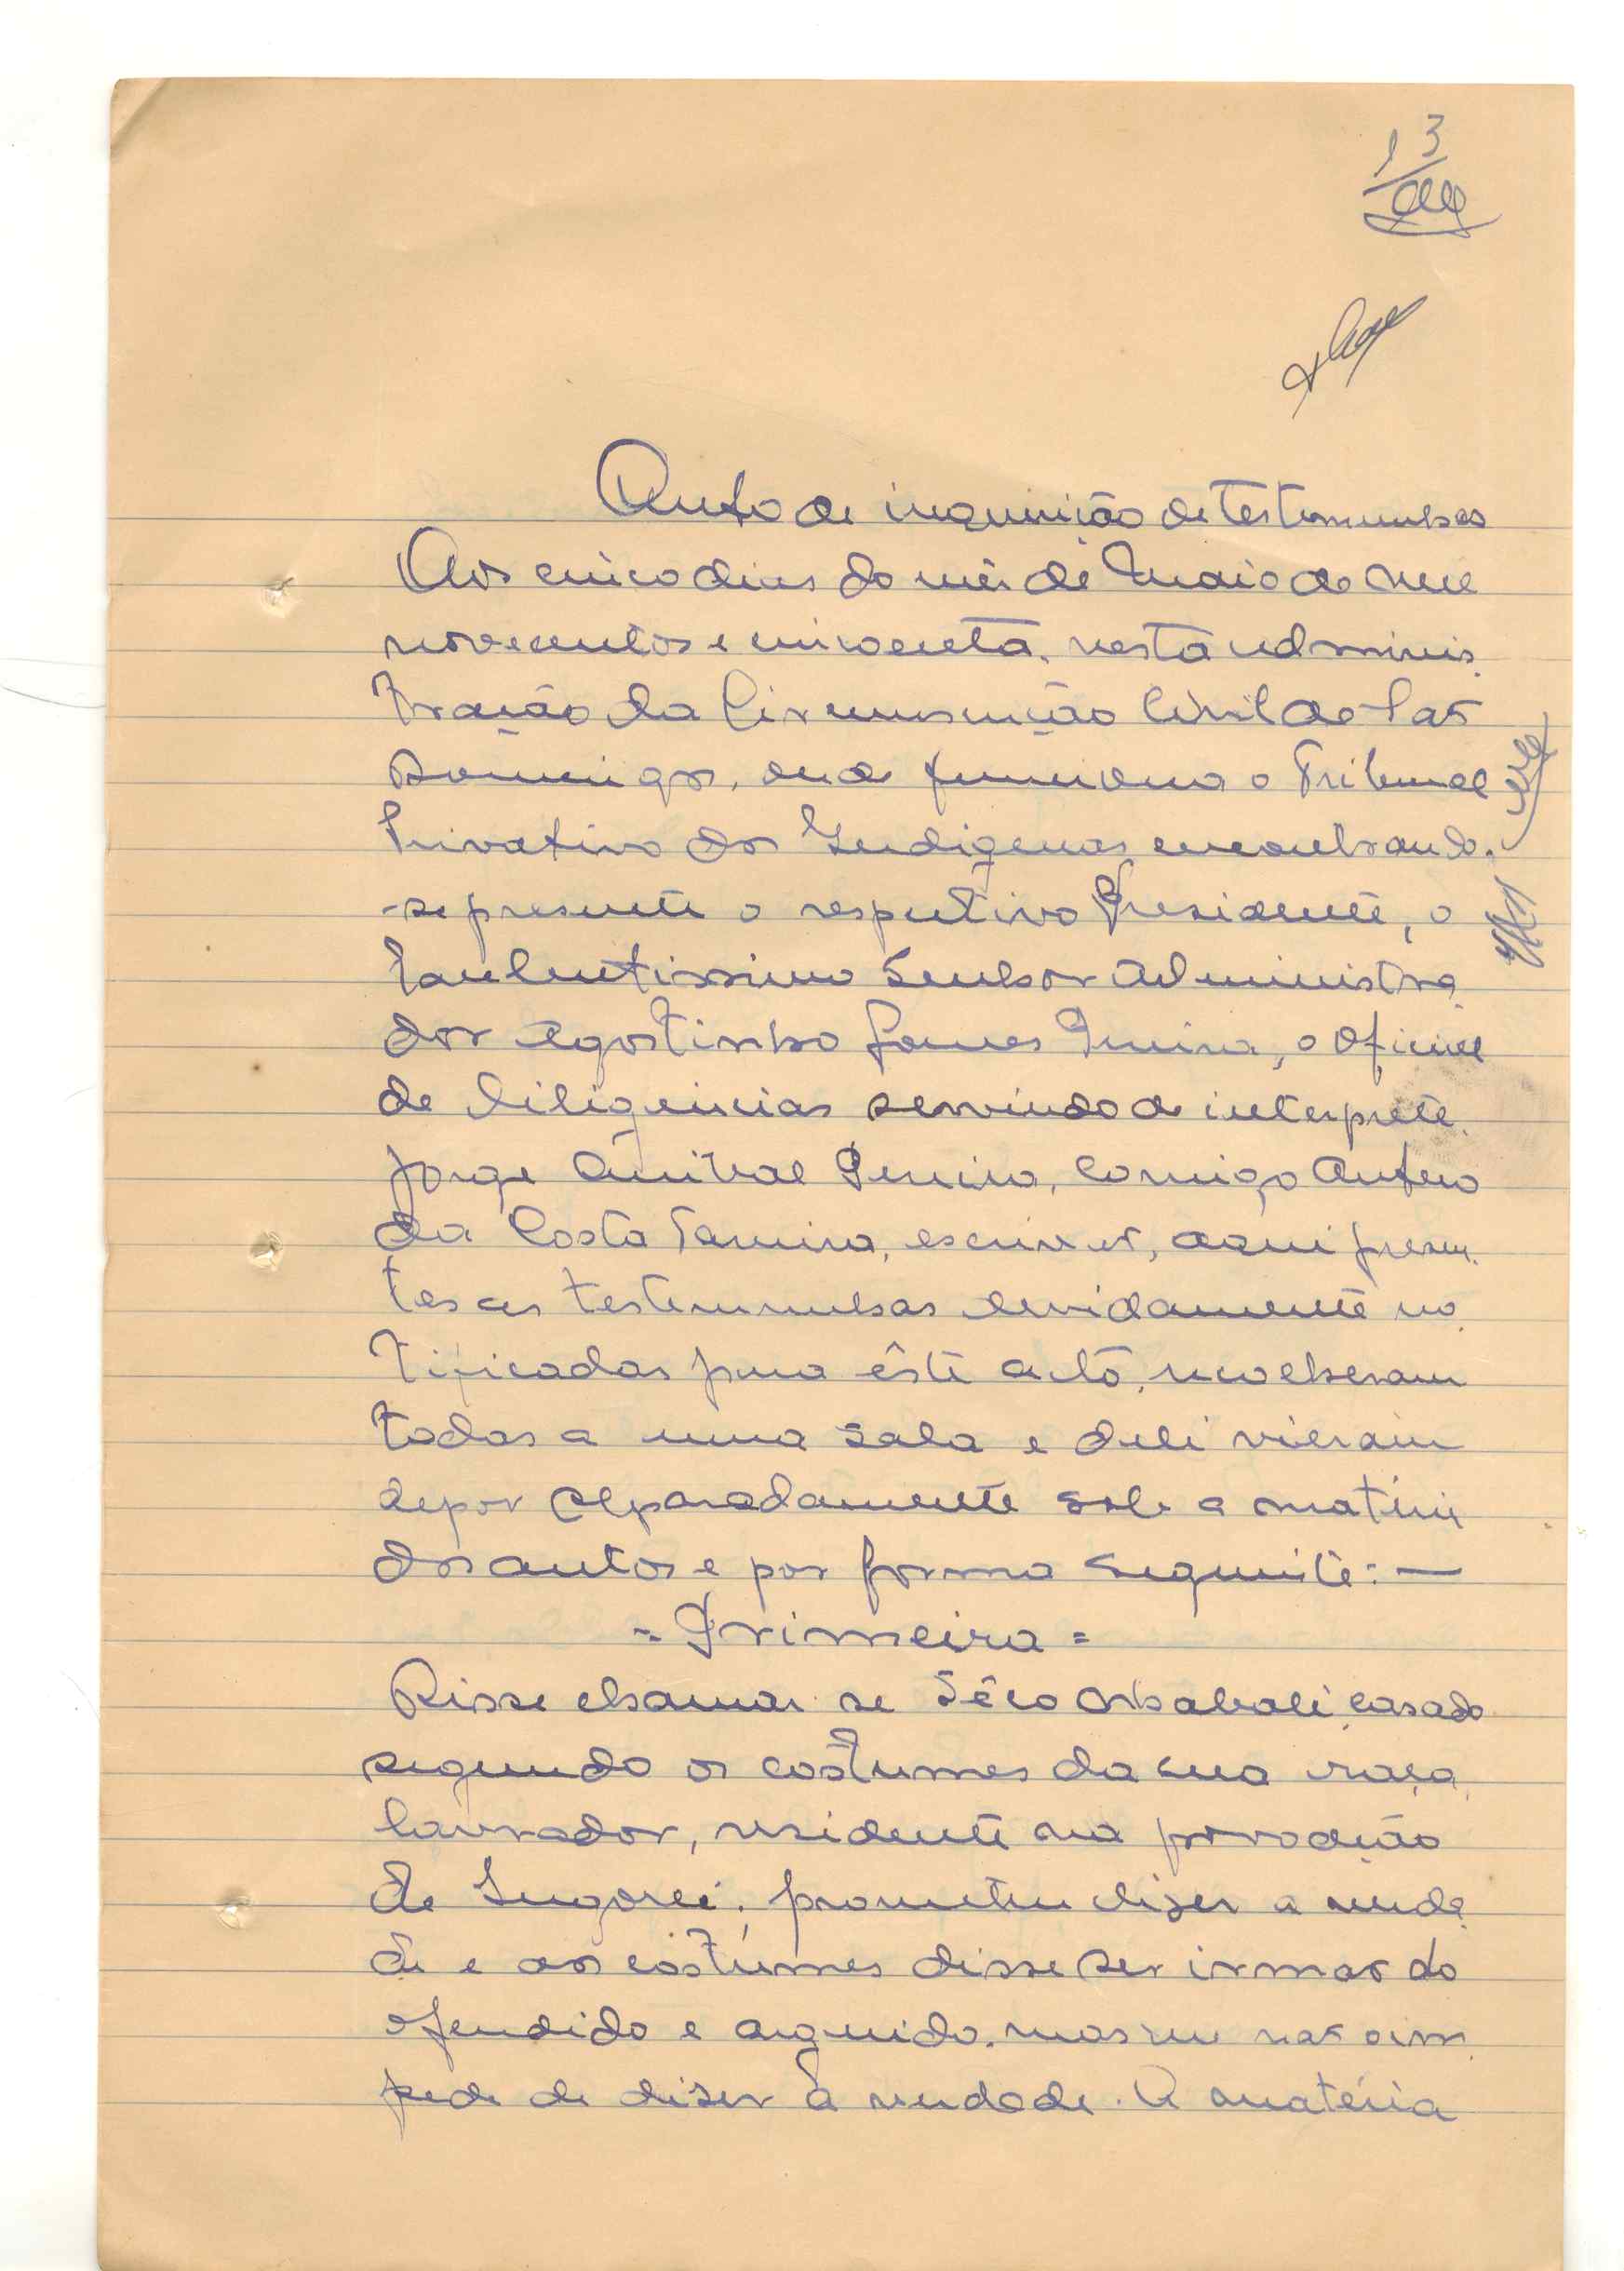 13
Auto de inquirição de testemunhas
Aos cinco dias do mês de Maio de mil
novecentos e cincoenta, nesta adminis-
tração da Circunscrição Civil de São
Domingos, onde funciona o Tribunal
Privativo dos Indigenas encontrando-
-se presente o respectivo Presidente, o
Excelentissimo Senhor Administra-
dor Agostinho Gomes Pereira, o Oficial
de Diligencias servindo de interprete
Jorge Anibal Pereira, comigo Antero
da Costa escrivão, aqui presen-
tes as testemunhas devidamente no-
tificadas para êste acto, recolheram
todas a uma sala e dali vieram
depor separadamente sob a matéria
dos autos e por forma seguinte: —
= Primeira =
Disse chamar-se Sêco casado
segundo os costumes da sua raça,
lavrador, residente na povoação
de Ingoré, prometeu dizer a verda-
de e aos costumes disse ser irmão do
ofendido e arguido, mas não o im-
pede de dizer a verdade. A matéria